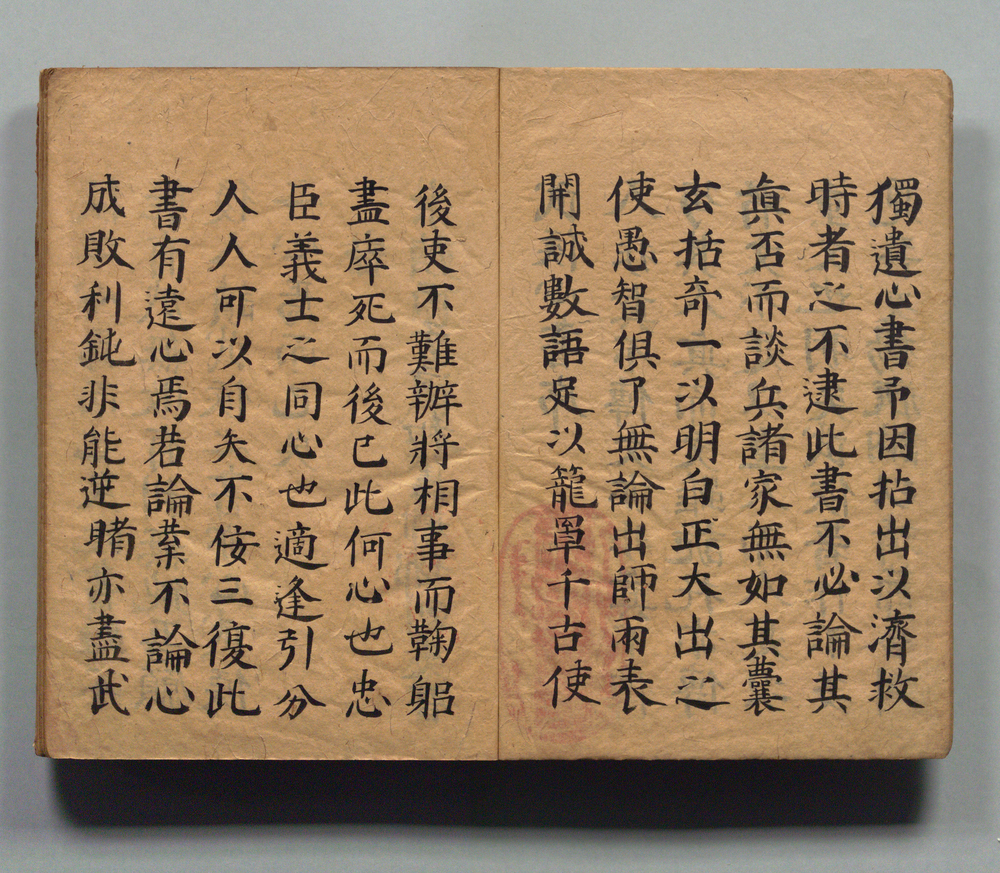 獨遺心書予因拈出以濟救
時者之不逮此書不必論其
真否而談兵諸家無如其囊
玄括奇一以明白正大出之
使愚智俱了無論出師兩表
開誠數語足以籠罩千古使
後吏不難辦將相事而鞠躬
盡瘁死而後已此何心也忠
臣義士之同心也適逢引分
人人可以自矢不佞三復此
書有遠心焉若論業不論心
成敗利鈍非能逆睹亦盡武